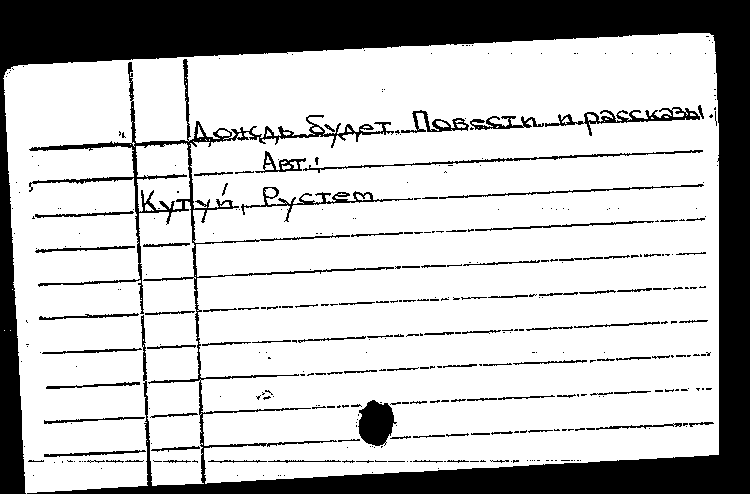 Дождь будет Повести и рассказы.
Авт.:
Кутуй, Рустем